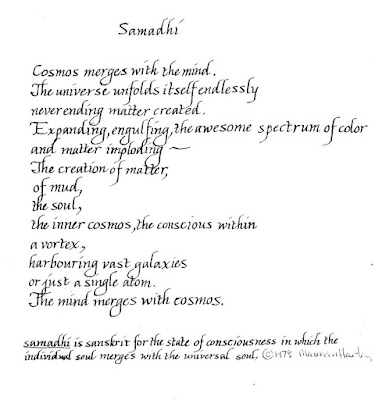 Samadhi
Cosmos merges with the mind.
The universe unfolds itself endlessly
never ending matter created.
Expanding, engulfing, the awesome spectrum of color
and matter imploding —
The creation of matter,
of mud,
the soul,
the inner cosmos, the conscious within
a vortex,
harbouring vast galaxies
or just a single atom.
The mind merges with cosmos.
samadhi is sanskrit for the state of consciousness in which the
individual soul merges with the universal soul. © 1978 Maureen